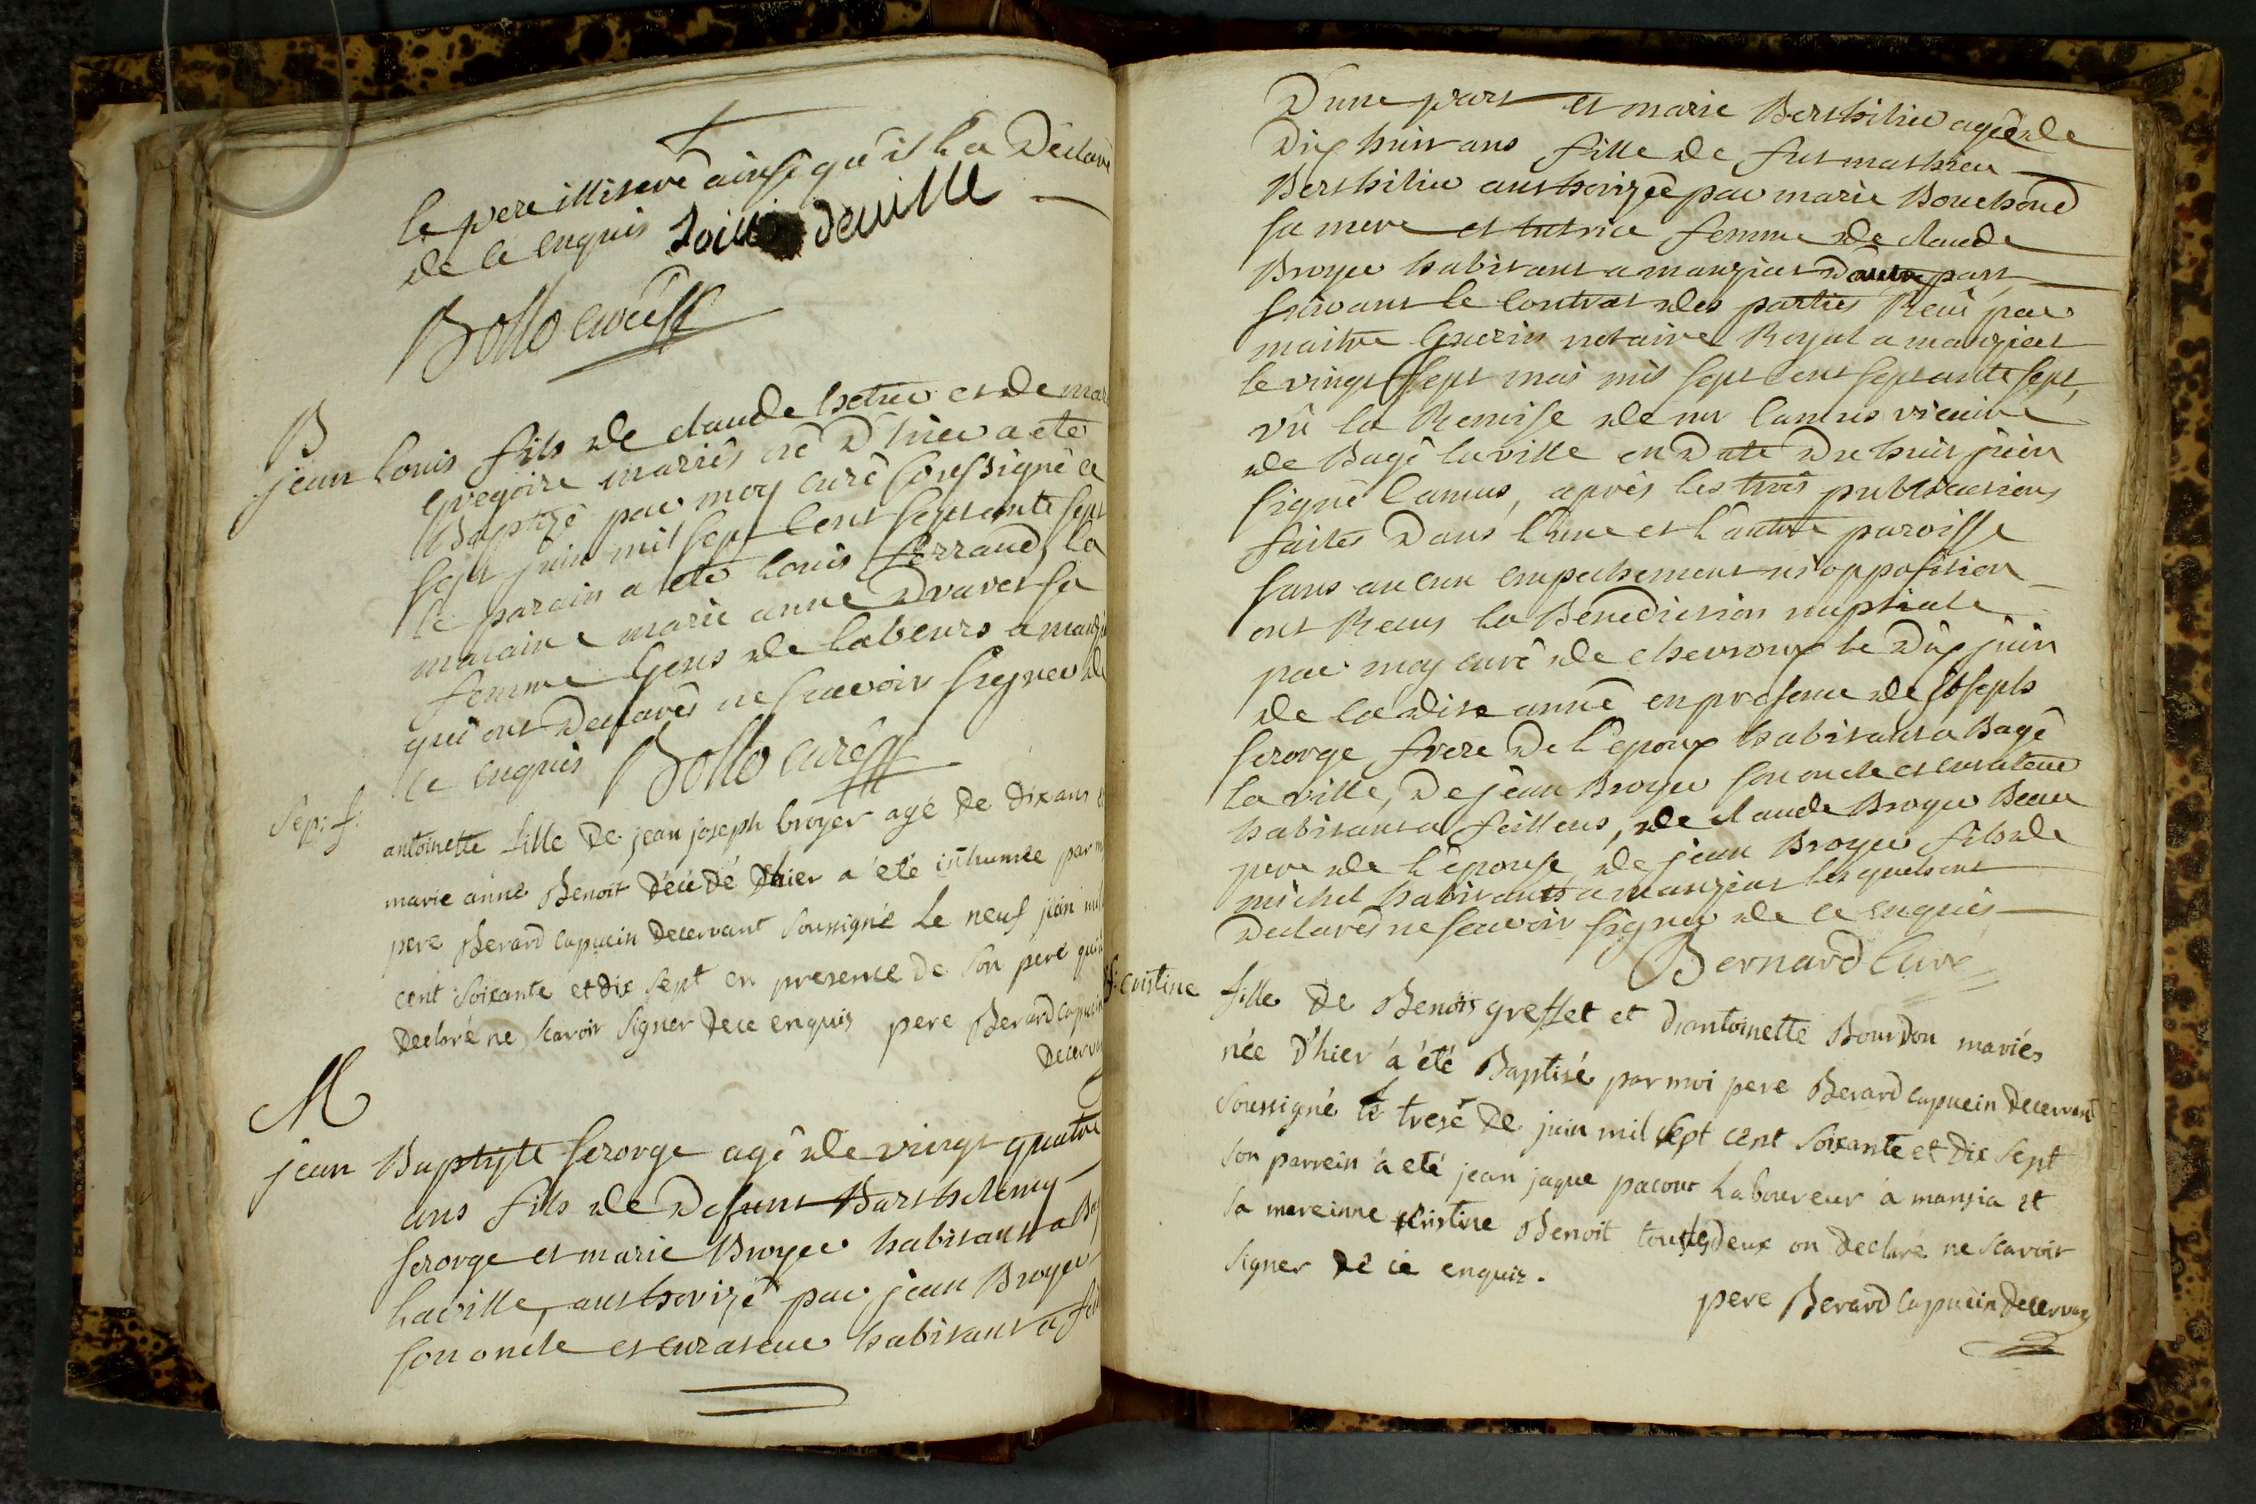 le pere illiteré ainsi qu'il l'a déclaré
de ce enquis deville
Bollo curé
B
jean louis fils de claude hetru et de mar
gregoire mariés né d'hier a eté
Baptizé par moy curé soussigné ce
sept juin mil sept cent septante sept
le parain a eté louis ferrand, la
maraine marie anne dravet sa
femme gens de labeurs a manzi
qui ont declarés ne scavoir signer de
ce enquis Bollo curé
Sep: f:
antoinette fille de jean joseph broyer agé de dix ans e
marie anne Benoit décédé d'hier a été inhumée par m
pere Berard capucin decervant soussigné le neuf juin mil
cent soixante et dix sept en presence de son père qui
declaré ne scavoir signer de ce enquis pere Berard capucin
decerv
M
jean Baptyte ferorge agé de vingt quatre
ans fils de defunt Barthelemy
ferorge et marie Broyer habitant a Bag
laville, authorizé par jean Broyer
son oncle et curateur habitant a feil
D'une part et marie Berthilier agée de
dix huit ans fille de fut mathieu
Berthilier authorizée par marie Bouchoud
sa mere et tutrice femme de claude
Broyer habitant a manziat d'autre part
suivant le contrat des parties Reçu par
maitre Guerin notaire Royal a manziat
le vingt sept mai mil sept cent septante sept,
vû la Remise de mr camus vicaire
de Bagé laville en date du huit juin
signé camus, après les trois publications
faites dans l'une et l'autre paroisse
sans aucun empechement ni opposition
ont Recus la Benediction nuptiale
par moy curé de chevroux le dix juin
de la dite année en presence de joseph
ferorge frere de l'epoux habitant a Bagé
la ville, de jean Broyer son oncle et curateur
habitant a feillens, de claude Broyer Beau
pere de l'epouse, de jean Broyer fils de
michel habitants a manziat lesquels ont
declarés ne scavoir signer de ce enquis
Bernard curé
f: cristine fille de Benois greffet et d'antoinette Bourdon mariés
née d'hier a été Baptisé par moi pere Berard capucin decervant
soussigné le trese de juin mil sept cent soixante et dix sept
son parrein a eté jean jaque pacout laboureur a mansia et
sa mereinne cristine Benoit tous les deux on declaré ne scavoir
signer de ce enquis.
pere Berard capucin decervan